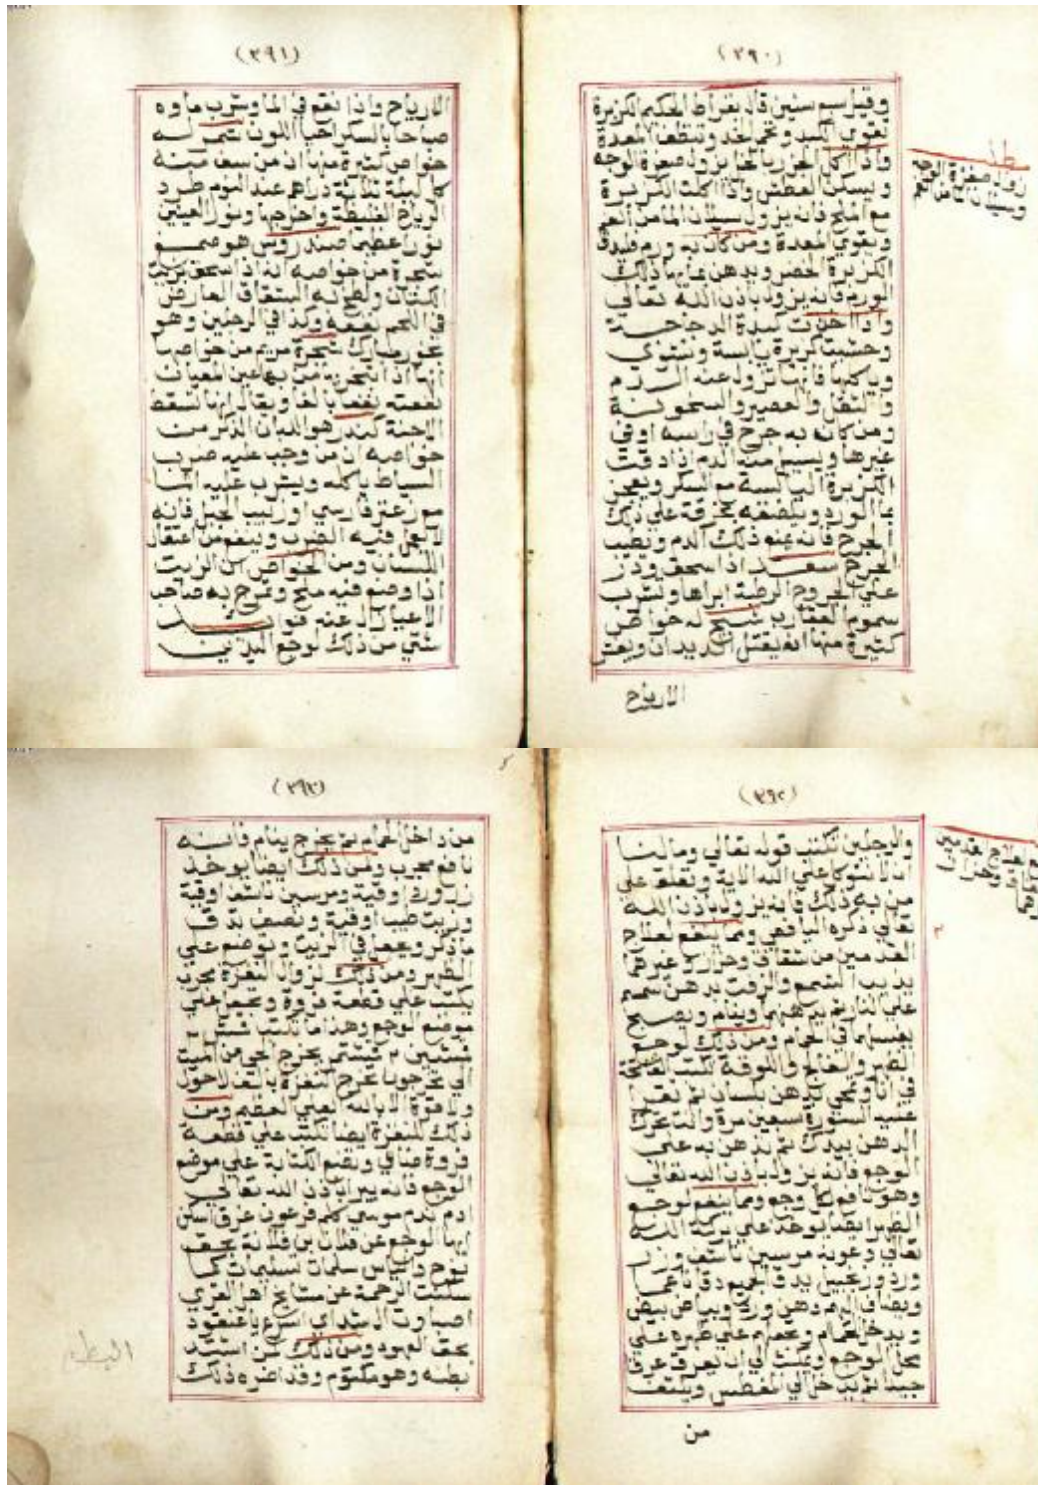 (٣٩٠)
وقيل سبع سنين قال بقراط الحكيم الكزبرة
تقوي الكبد وتحمر الخد وتنظف المعدة
واذا اكل الجزر بالخل يزول صفرة الوجه
ويسكن العطش واذا اكلت الكزبرة
مع الملح فانه يزول سيلان الما من الفم
ويقوي المعدة ومن كان به ورم فيدق
الكزبرة الخضر ويدهن بمايها ذلك
الورم فانه يزول باذن الله تعالي
واذا اخذت كبدة الدجاجة
وحشيت كزبرة يابسة وتشوي
وياكلها فانها تزول عنه
والثقل والعصير والسخونة
ومن كان به جرح في راسه او في
غيرها ويسيل منه الدم اذا دقت
الكزبرة اليابسة مع السكر ويعجن
بما الورد ويلصقه بخرقة علي ذلك
الجرح فانه يمنع ذلك الدم ويطيب
الجرح سعد اذا سحق وذر
علي الجروح الرطبة ابراها ولشرب
سموم العقارب شيح له خواص
كثيرة منها انه يقتل الديدان ويفش
الارياح
زول صفرة الوجه
وسيلان الما من الفم
(٣٩١)
الارياح واذا نقع في الما وشرب ماوه
صباحا بالسكر احيا اللون شمر له
خواص كثيرة منها ان من سف منه
كل ليلة ثلاثة دراهم عند النوم طرد
الرياح الغليظة واخرجها ونور العينين
نورا عظيما صندروس هو صمغ
شجرة من خواصه انه اذا سحق بزيت
الكتان ولطخ به الشقاق العارض
في اللحم نفعه وكذا في الرجلين وهو
بخور مبارك شجرة مريم من خواصها
انها اذا تبخر بها من به عين المعيان
نفعته نفعا بالغا ويقال انها تسقط
الاجنة كندر هو اللبان الذكر من
خواصه ان من وجب عليه ضرب
السياط ياكله ويشرب عليه الما
مع زعتر فارسي او زبيب الجبل فانه
لا يعمل فيه الضرب وينفع من اعتقال
اللسان ومن الخواص ان الزيت
اذا وضع فيه ملح وتمرخ به صاحب
الاعيا زال عنه فوايد
شتي من ذلك لوجع اليدين
(٣٩٢)
والرجلين تكتب قوله تعالي وما لنا
ان لا نتوكل علي الله الاية وتعلق علي
من به ذلك فانه يزول باذن الله
تعالي ذكره اليافعي ومما ينفع لعلاج
القدمين من شقاق وحزاز وغيرهما
يذيب الشمع والزفت بدهن سمسم
علي النار ثم يدهنهما وينام ويصبح
يغسلهم في الحمام ومن ذلك لوجع
الظهر والفالج واللوقة تكتب الفاتحة
في انا وتمحي بدهن بلسان ثم تقرا
عليه السورة سبعين مرة وانت تحرك
الدهن بيدك ثم يدهن به علي
الوجع فانه يزول باذن الله تعالي
وهو نافع لكل وجع ومما ينفع لوجع
الظهر ايضا يوخذ علي بركة الله
تعالي وعونه مرسين ناشف وزر
ورد وزنجبيل يدق الجميع دقا ناعما
ويضاف اليهم دهن ورد وبياض بيض
ويدخل الحمام ويجعلهم علي ظهره علي
محل الوجع ويمكث الي ان يعرق عرقا
جيدا ثم يدخل الي المغطس ويلتف
من
(٣٩٣)
من داخل الحمام ثم يخرج ينام فانه
نافع مجرب ومن ذلك ايضا يوخذ
زر ورد اوقية ومرسين ناشف اوقية
وزيت طيب اوقية ونصف تدق
ما ذكر ويجعل في الزيت ويوضع علي
الظهر ومن ذلك لزوال النغزة مجرب
يكتب علي قطعة فروة وتجعل علي
موضع الوجع وهذا ما تكتب
يخرج الحي من الميت
اخرجوا يخرج النغزة بالف لا حول
ولا قوة الا بالله العلي العظيم ومن
ذلك للنغزة ايضا تكتب علي قطعة
فروة ضاني ويضع الكتابة علي موضع
الوجع فانه يبرا باذن الله تعالي
ادم ندم موسي كلم فرعون غرق اسكن
ايها الوجع عن فلان بن فلانة بحق
نوح والياس سلمات تسليمات كما
سكنت الرحمة عن مشايخ اهل القري
بحق العهود ومن ذلك لمن اشتد
بطنه وهو مكتوم وقد اضره ذلك